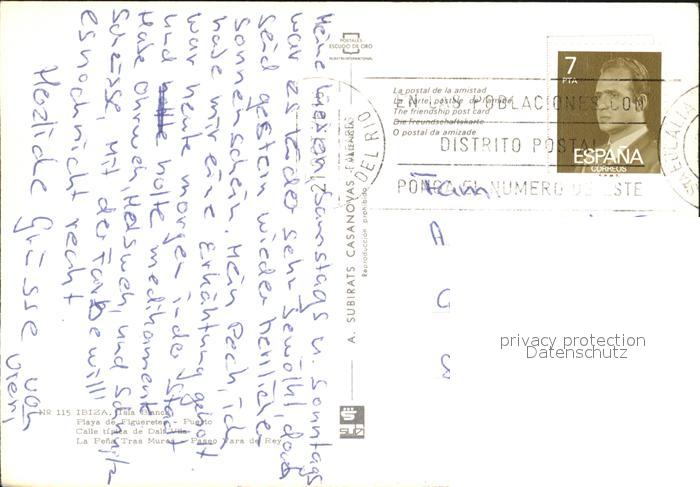 Meine Lieben, Samstags u. Sonntags
war es leider sehr bewölkt, doch
seid gestern wieder herrlicher
Sonnenschein. Mein Pech, ich
habe mir eine Erkältung geholt.
War heute morgen in der Stadt
und holte Medikamente
Habe Ohrweh, Halsweh, und Schnupfen
Scheisse, mit der Farbe will
es noch nicht recht.
Herzliche Grüsse von
POSTALES
ESCUDO DE ORO
A. SUBIRATS CASANOVAS - VALENCIA
Reproducción prohibida
La postal de la amistad
La carte postale de l'amitié
The friendship post card
Die Freundschaftskarte
O postal da amizade
7
PTA
ESPAÑA
CORREOS
EN LAS POBLACIONES CON
DISTRITO POSTAL
PONGA EL NUMERO DE ESTE
DEL RIO
Fam.
A
G
privacy protection
Datenschutz
NR 115 IBIZA. Isla Blanca
Playa de Figueretes - Puerto
Calle típica de Dalt Vila
La Peña Tras Muros - Paseo Vara de Rey